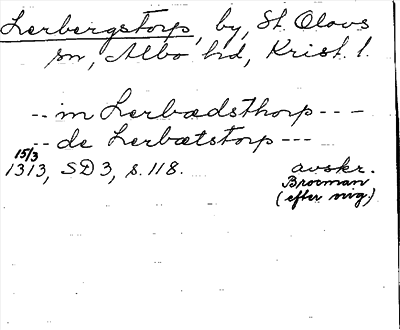 Lerbergstorp, by, St. Olovs
sn, Albo hd, Krist. l.
-- in Lerbædsthorp ---
-- de Lerbætstorp ---
15/3
1313, SD 3, s. 118. avskr.
Broeman
(efter orig.)